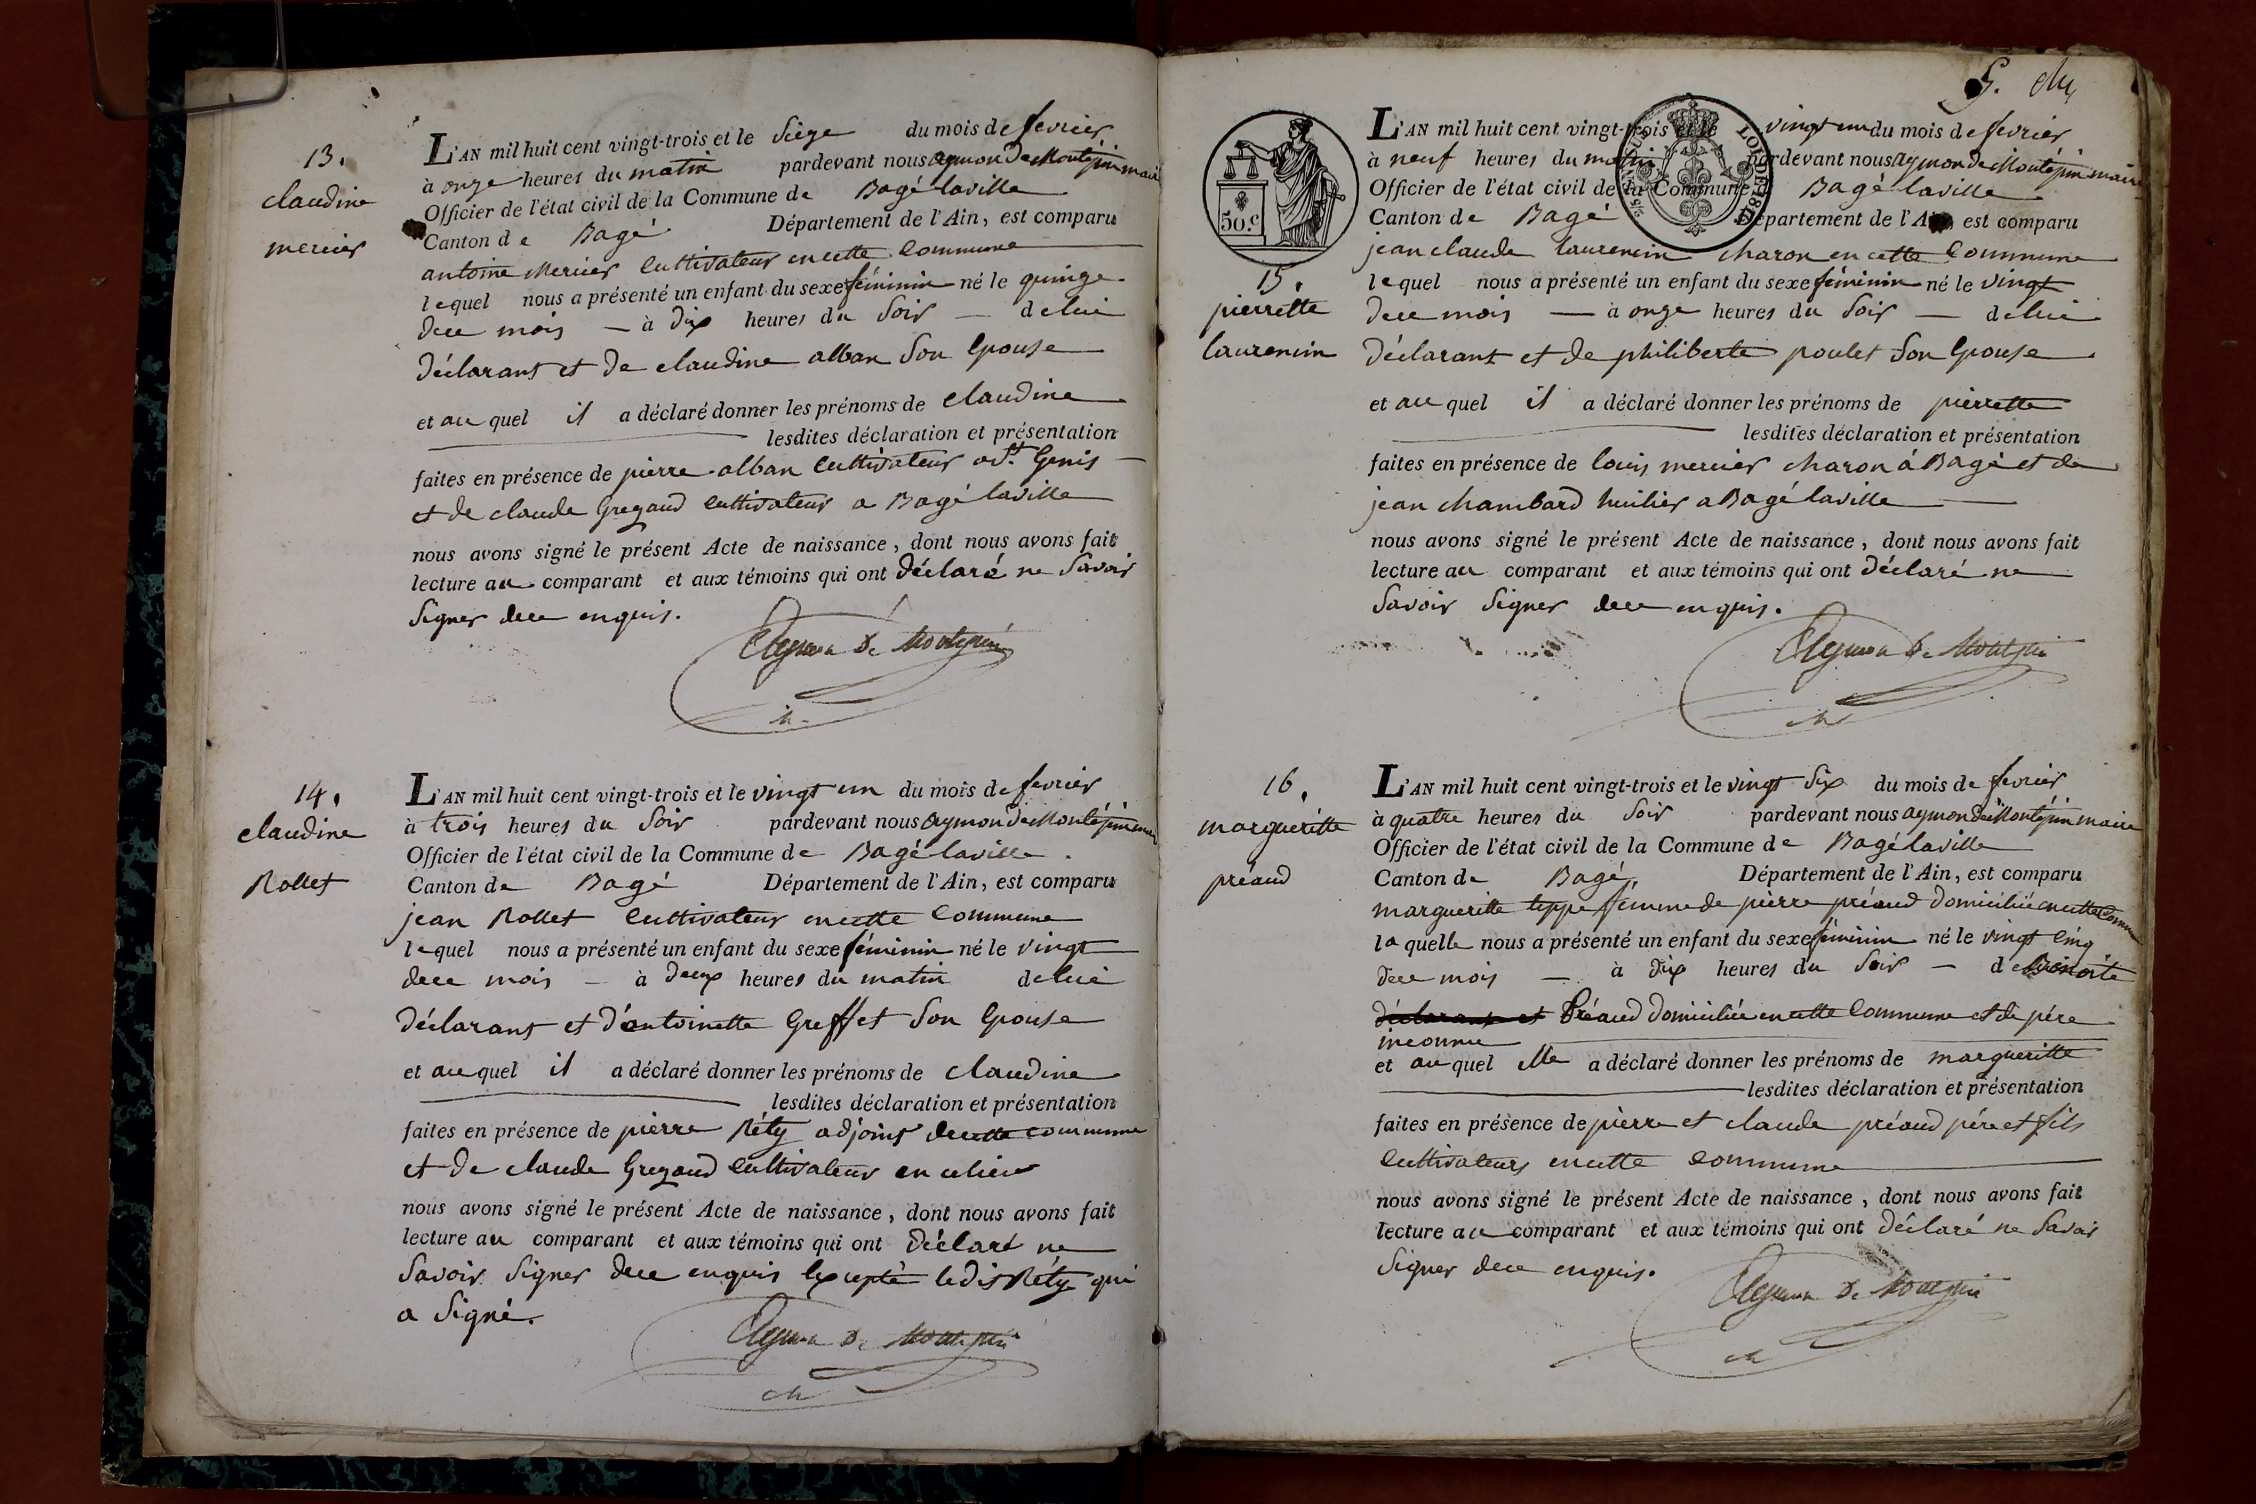 13.
claudine
mercier
L'AN mil huit cent vingt-trois et le Sieze du mois de fevrier
à onze heures du matin pardevant nous aymon De Montépin maire
Officier de l'état civil de la Commune de Bagé laville
Canton de Bagé Département de l'Ain, est comparu
antoine Mercier Cultivateur en cette Commune
lequel nous a présenté un enfant du sexe féminin né le quinze
dece mois — à dix heures du Soir — de lui
déclarant et De claudine alban Son Epouse
et au quel il a déclaré donner les prénoms de claudine
lesdites déclaration et présentation
faites en présence de pierre alban Cultivateur a St. Genis
et de claude Gregaud Cultivateur a Bagé laville
nous avons signé le présent Acte de naissance, dont nous avons fait
lecture au comparant et aux témoins qui ont déclaré ne Savoir
Signer dece enquis.
Aymon De Montepin
m.
14.
claudine
Rollet
L'AN mil huit cent vingt-trois et le vingt un du mois de fevrier
à trois heures du Soir pardevant nous aymon De Montépin maire
Officier de l'état civil de la Commune de Bagé laville.
Canton de Bagé Département de l'Ain, est comparu
jean Rollet Cultivateur en cette Commune
lequel nous a présenté un enfant du sexe féminin né le vingt
dece mois — à deux heures du matin de lui
déclarant et d'antoinette Greffet Son Epouse
et au quel il a déclaré donner les prénoms de claudine
lesdites déclaration et présentation
faites en présence de pierre Réty adjoint decette commune
et de claude Gregaud Cultivateur en celieu
nous avons signé le présent Acte de naissance, dont nous avons fait
lecture au comparant et aux témoins qui ont Déclaré ne
Savoir Signer dece enquis Excepté ledit Réty qui
a Signé.
Aymon De Montepin
m
5.
50.c
LOI DE 1816
15.
pierrette
laurencin
L'AN mil huit cent vingt-trois et le vingt un du mois de fevrier
à neuf heures du matin pardevant nous aymon De Montépin maire
Officier de l'état civil de la Commune Bagé laville
Canton de Bagé Département de l'Ain, est comparu
jean claude laurencin charon en cette Commune
lequel nous a présenté un enfant du sexe féminin né le vingt
dece mois — à onze heures du Soir — de lui
déclarant et De philiberte poulet Son Epouse
et au quel il a déclaré donner les prénoms de pierrette
lesdites déclaration et présentation
faites en présence de louis mercier charon á Bagé et de
jean chambard huilier a Bagé laville
nous avons signé le présent Acte de naissance, dont nous avons fait
lecture au comparant et aux témoins qui ont déclaré ne
Savoir Signer dece enquis.
Aymon De Montepin
m
16.
margueritte
préaud
L'AN mil huit cent vingt-trois et le vingt Six du mois de fevrier
à quatre heures du Soir pardevant nous aymon de Montépin maire
Officier de l'état civil de la Commune de Bagé laville
Canton de Bagé Département de l'Ain, est comparu
margueritte teppe fémme de pierre préaud domiciliée en cette Commune
laquelle nous a présenté un enfant du sexe féminin né le vingt Cinq
dece mois — à dix heures du Soir — de Benoite
déclarant et Préaud domiciliée en cette Commune et de pére
inconnu
et au quel elle a déclaré donner les prénoms de marguerite
lesdites déclaration et présentation
faites en présence de pierre et claude préaud pére et fils
Cultivateurs en cette commune
nous avons signé le présent Acte de naissance, dont nous avons fait
lecture au comparant et aux témoins qui ont déclaré ne Savoir
Signer dece enquis.
Aymon De Montepin
m